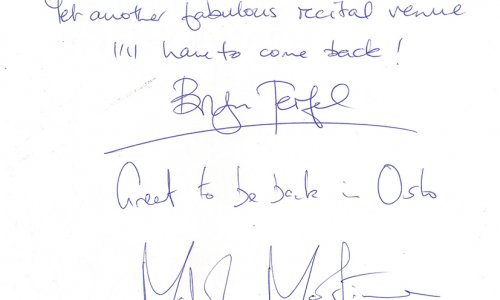 Yet another fabulous recital venue
I'll have to come back!
Bryn Terfel
Great to be back in Oslo